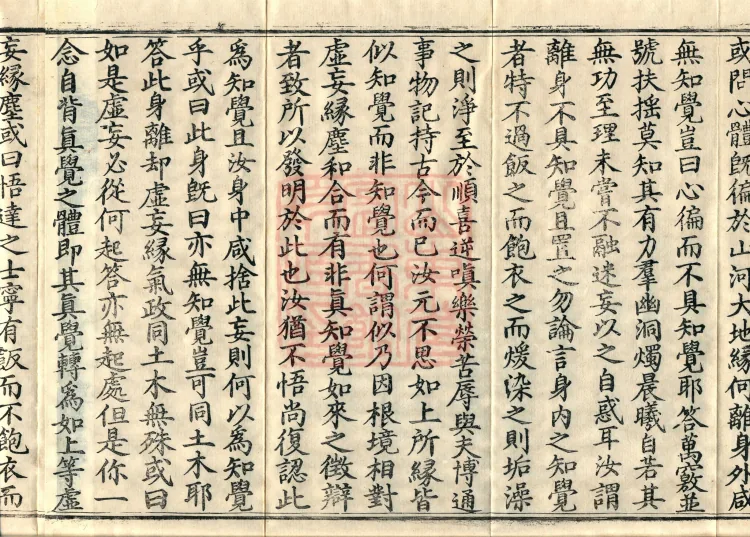 或問心體旣徧於山河大地緣何離身外咸
無知覺豈曰心徧而不具知覺耶答萬竅並
號扶搖莫知其有力羣幽洞燭晨曦自若其
無功至理未嘗不融迷妄以之自惑耳汝謂
離身不具知覺且置之勿論言身內之知覺
者特不過飯之而飽衣之而煖染之則垢澡
之則淨至於順喜逆嗔樂榮苦辱與夫博通
事物記持古今而已汝元不思如上所緣皆
似知覺而非知覺也何謂似乃因根境相對
虛妄緣塵和合而有非眞知覺如來之徵辯
者致所以發明於此也汝猶不悟尚復認此
爲知覺且汝身中咸捨此妄則何以爲知覺
乎或曰此身旣曰亦無知覺豈可同土木耶
答此身離却虛妄緣氣政同土木無殊或曰
如是虛妄必從何起答亦無起處但是你一
念自背眞覺之體即其眞覺轉爲如上等虛
妄緣塵或曰悟達之士寧有飯而不飽衣而